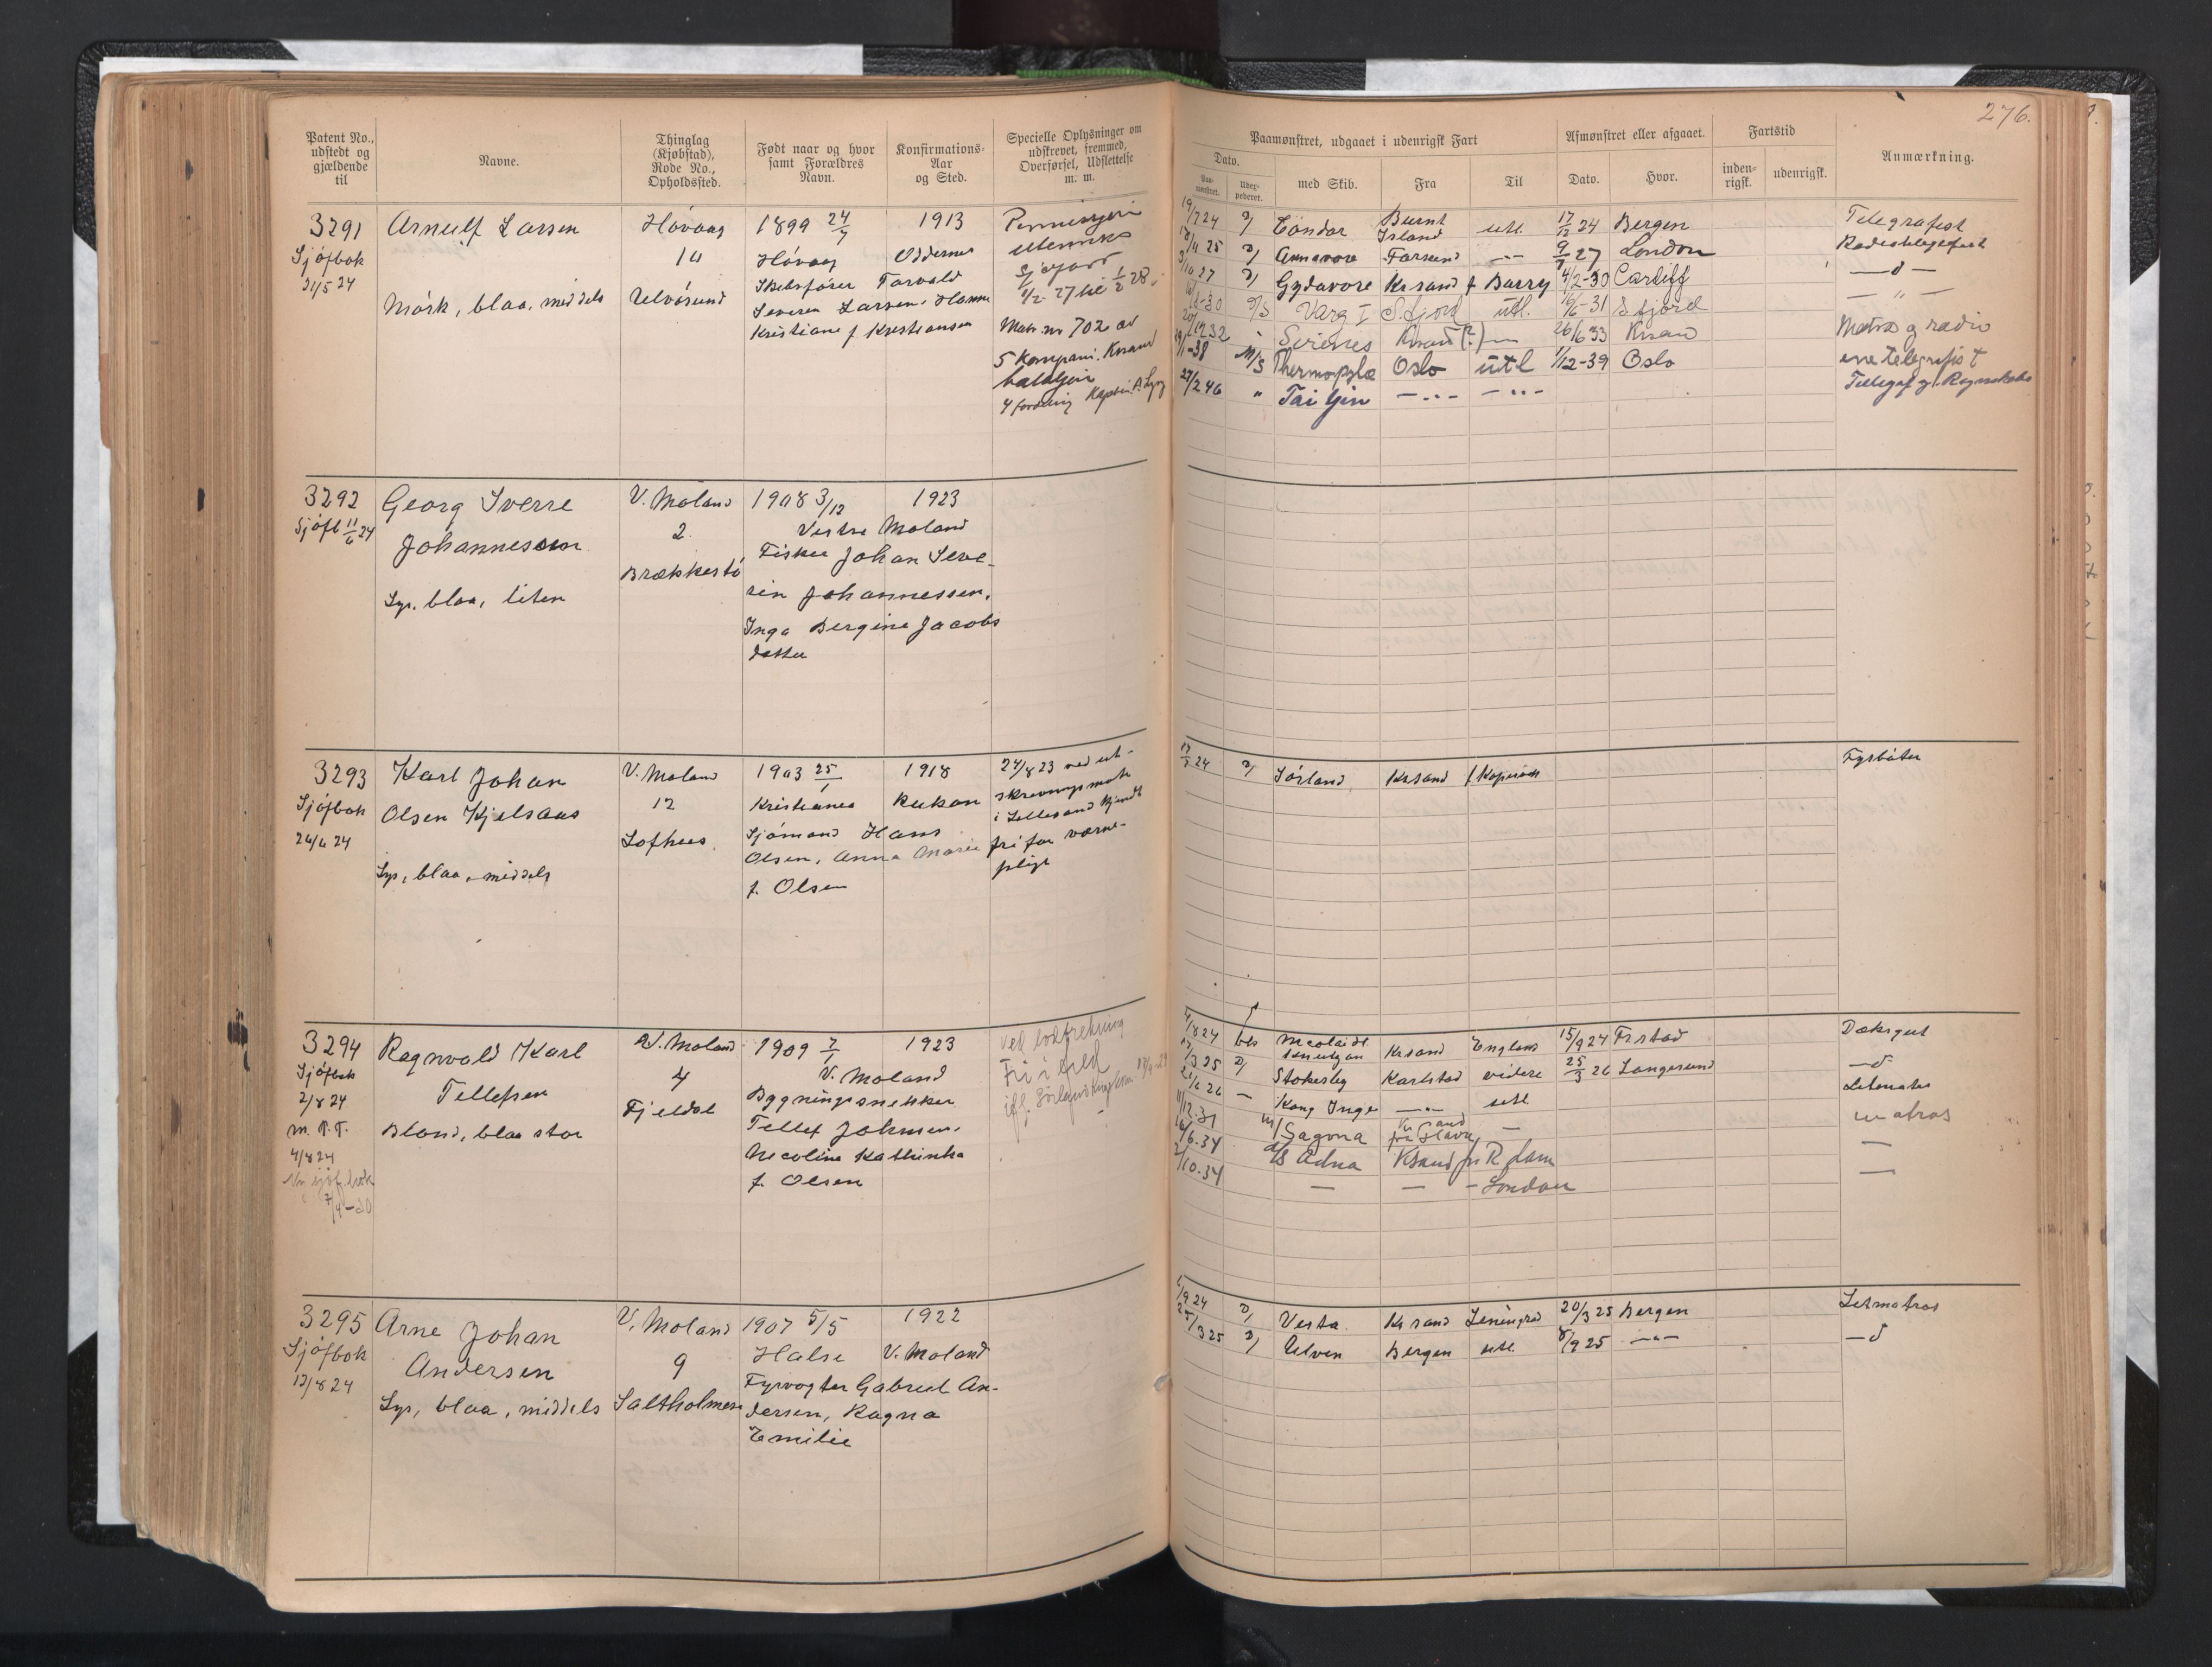 276.
Patent No., udstedt og gjældende til
Navne.
Thinglag (Kjøbstad), Rode No., Opholdssted.
Født naar og hvor samt Forældres Navn.
Konfirmations-Aar og Sted.
Specielle Oplysninger om udskrevet, fremmed, Overførsel, Udslettelse m. m.
Paamønstret, udgaaet i udenrigsk Fart
Dato.
med Skib.
Fra
Til
Afmønstret eller afgaaet.
Dato.
Hvor.
Fartstid
inden-rigsk.
udenrigsk.
Anmærkning.
3291
Sjöfbok
21/5 24
Arnulf Larsen
Mörk, blaa, middels
Hövaag
10
Ulvösund
1899 24/7
Hövaag
Skibsfører Torvald
Severin Larsen, Hanna
Kristiane f. Kristiansen
1913
Oddernes
utenriks
sjøfart
Matr. nr 702 av
5 kompani. Krsand
bataljon
19/7 24 Töndor Burnt Island utl. 17/12 24 Bergen Telegrafist
25 Annavore Farsund 9/7 27 London Radiotelegrafist
27 Gydavore Krsand f Barry 4/2-30 Cardiff — d —
Varg I S.fjord utl. 16/6-31 S fjord — " —
32 Sirenes 26/6 33 Krsand Matros og radio
1-38 M/S Thermopylæ Oslo utl 1/12-39 Oslo telegrafist
27/2 46 " Tai Yin — " — — " —
3292
Sjöfb 11/6 24
Georg Sverre
Johannessen
Lys, blaa, liten
V. Moland
2
Brækkestö
1908 3/12 1923
Vestre Moland
Fisker Johan Seve-
rin Johannessen,
Inga Bergine Jacobs
datter
3293
Sjöfbok
24/6 24
Karl Johan
Olsen Kjelsaas
Lys, blaa, middels
V. Moland
12
Lofthus
1903 25/1
Kristiania
Sjömand Hans
Olsen, Anna Marie
f. Olsen
1918
Rukan
24/8 23 ved ut-
skrivningsmöte
i Lillesand kjendt
fri for værne-
pligt
17/7 24 Sörland Krsand Fyrböter
3294
Sjöfbok
2/8 24
m. P.T.
4/8 24
Ny sjöf.bok
7/4-30
Ragnvald Karl
Tellefsen
Blond, blaa stor
V. Moland
4
Fjeldal
1909 7/1 1923
V. Moland
Bygningssnekker
Tellef Johnsen,
Nicolina Kathinka
f. Olsen
Ved lodtrekning
Fri i fred
4/8 24 Krsand England 15/9 24 Frstad Dæksgut
3 25 Stokesley Karlstad videre 25/3 26 Langesund — d
26 — Kong Inge — " — utl Letmatros
31 m/ Sagona matros
6.34 d/s Edna Krsand fr R.dam —
2/10.34 — — — London —
3295
Sjöfbok
13/8 24
Arne Johan
Andersen
Lys, blaa, middels
V. Moland
9
Saltholmen
1907 5/5
Halse
Fyrvogter Gabriel An-
dersen, Ragna
Emilie
1922
V. Moland
9 24 Vesta Krsand Leningrad 20/3 25 Bergen Letmatros
25/3 25 Ulven Bergen utl. 8/9 25 — " — — d